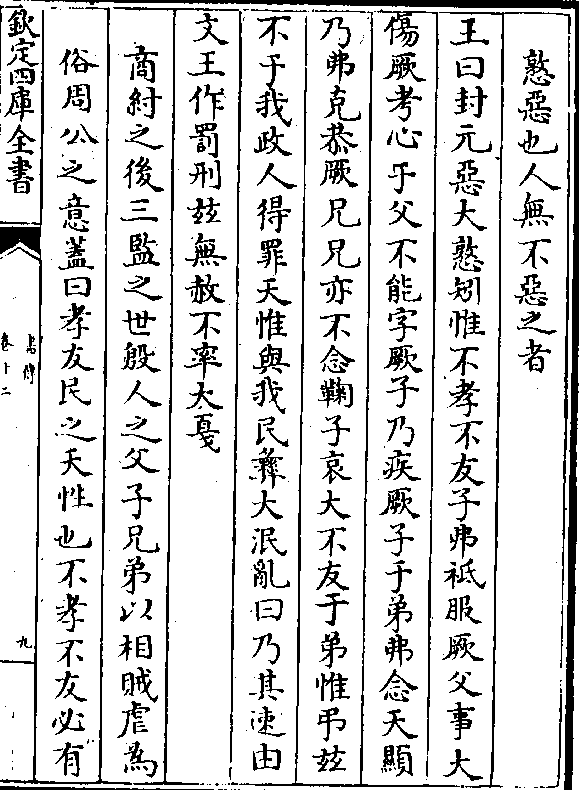 憝惡也人無不惡之者
王曰封元惡大憝矧惟不孝不友子弗祗服厥父事大
傷厥考心于父不能字厥子乃疾厥子于弟弗念天顯
乃弗克恭厥兄兄亦不念鞠子哀大不友于弟惟弔玆
不于我政人得罪天惟與我民彝大泯亂曰乃其速由
文王作罰刑玆無赦不率大戛
商紂之後三監之世殷人之父子兄弟以相賊虐為
俗周公之意蓋曰孝友民之天性也不孝不友必有
欽定四庫全書
書傳
卷十二
九